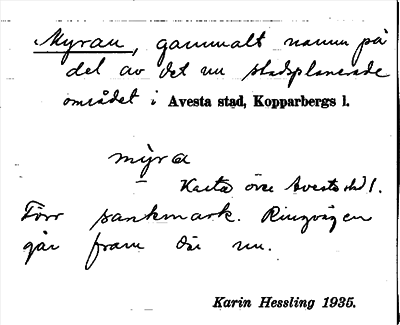 Myran, gammalt namn på
del av det nu stadsplanerade
området i Avesta stad, Kopparbergs l.
mỳra
Karta över Avesta stad 1.
Förr sankmark. Ringvägen
går fram där nu.
Karin Hessling 1935.